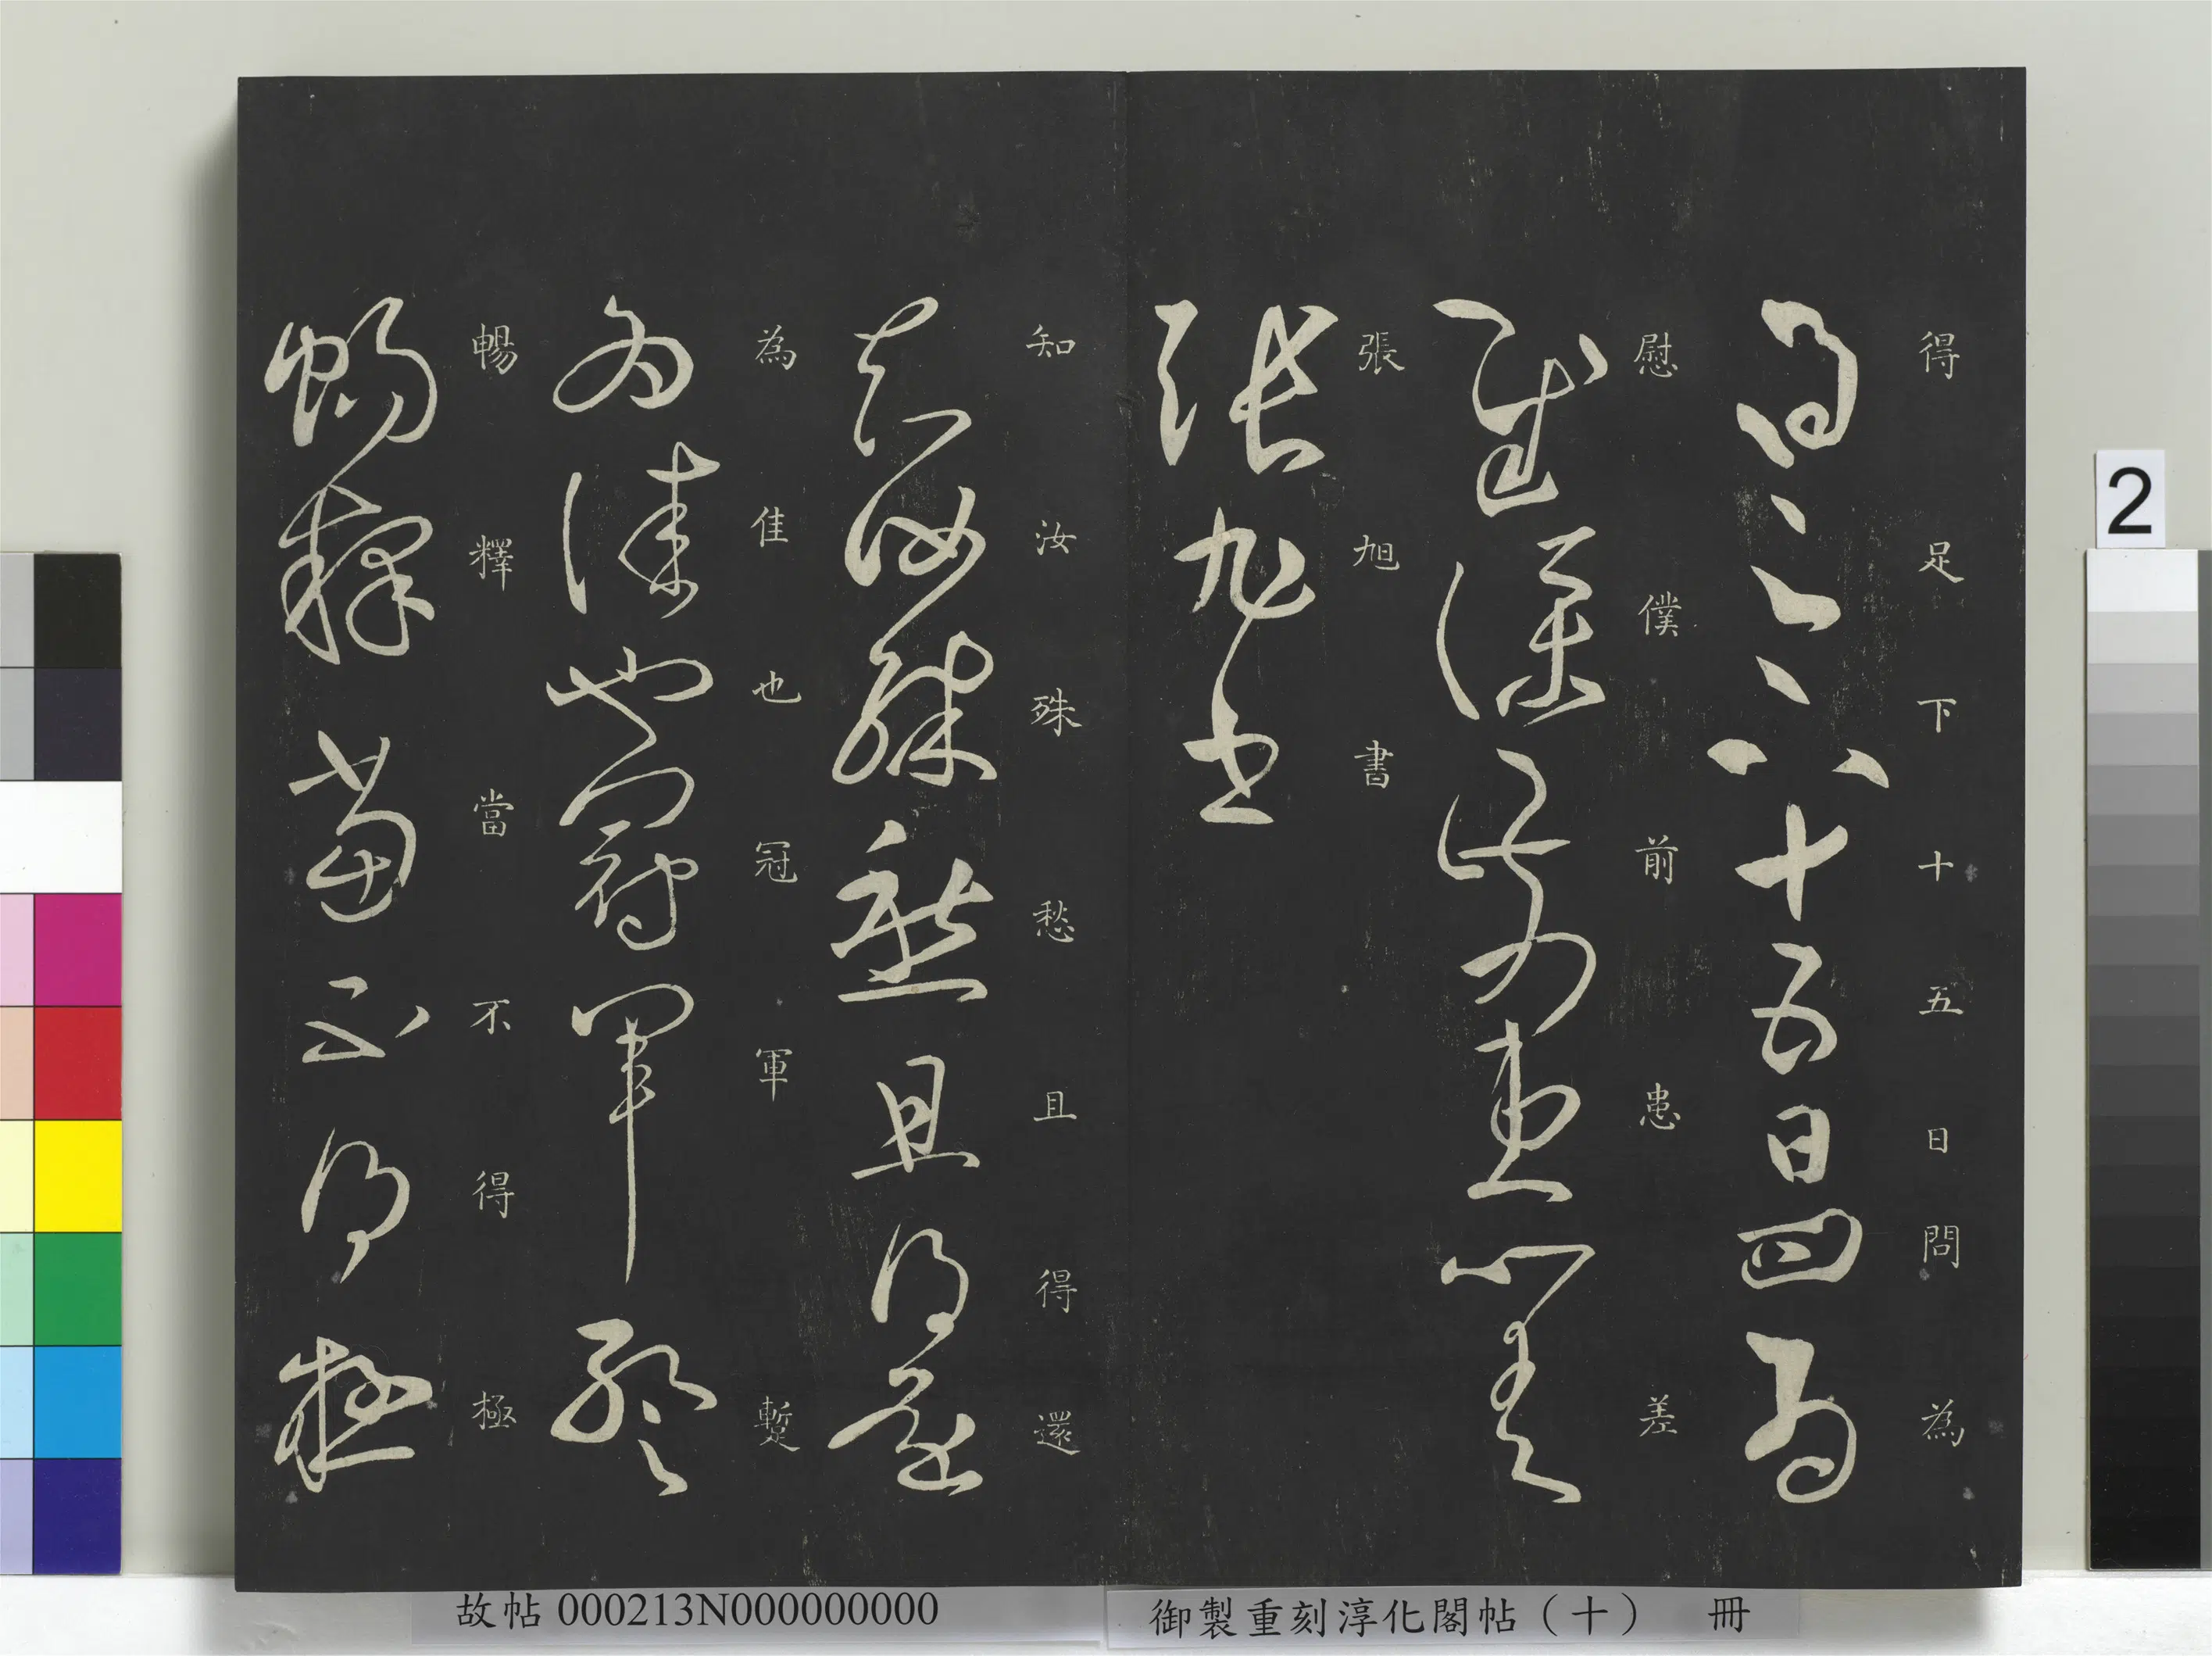 得足下十五日問為
慰僕前患差
張旭書
知汝殊愁且得還
為佳也冠軍蹔
暢釋當不得極
故帖 000213N000000000
御製重刻淳化閣帖（十） 冊
2